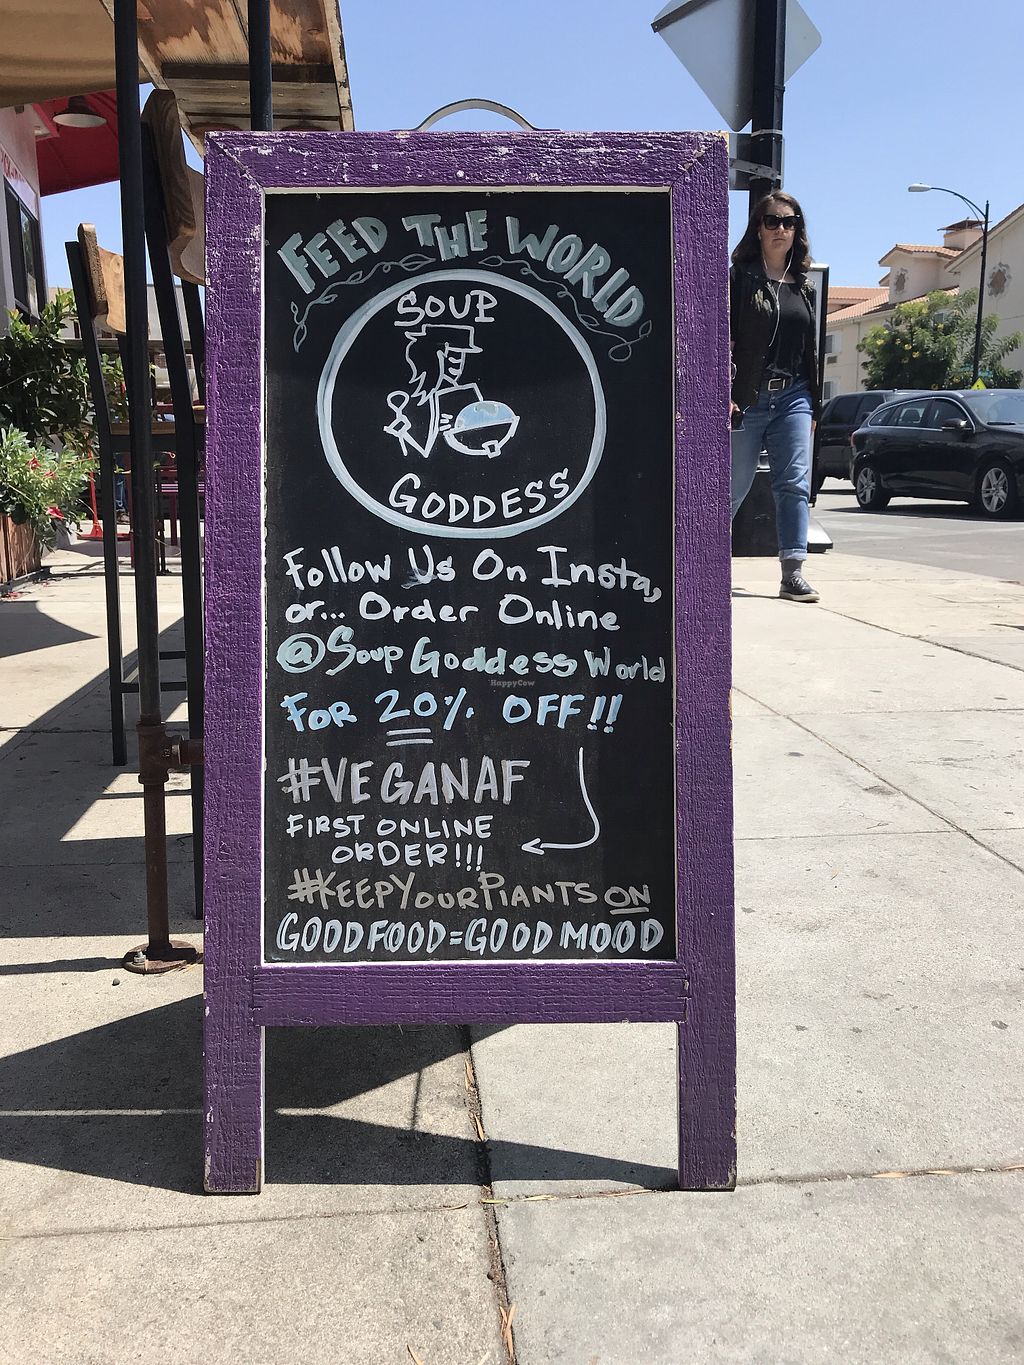 FEED THE WORLD
SOUP
GODDESS
Follow Us On Insta,
or... Order Online
@Soup Goddess World
HappyCow
FOR 20% OFF!!
#VEGANAF
FIRST ONLINE
ORDER!!!
#KEEPYOURPlANTS ON
GOOD FOOD=GOOD MOOD